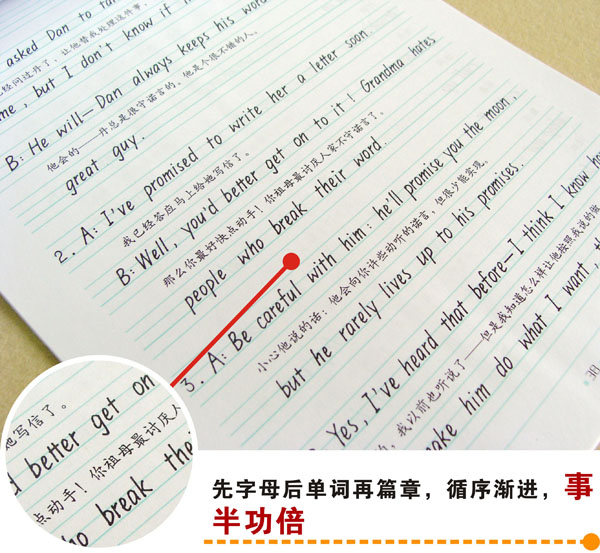 asked Dan to
他会的——丹总是很守诺言的。他是个很不错的人。
me, but I don't know if
B: He will—Dan always keeps his word
great guy.
2. A: I've promised to write her a letter soon.
我已经答应马上给她写信了。
B: Well, you'd better get on to it! Grandma hates
那么你最好快点动手!你祖母最讨厌人家不守诺言了。
people who break their word.
3. A: Be careful with him: he'll promise you the moon,
小心他说的话:他会向你许些动听的诺言,但很少能实现。
but he rarely lives up to his promises.
B: Yes, I've heard that before—I think I know how
的,我以前也听说了——但是我知道怎么样让他按照我说的做
make him do what I want,
30
写信了。
better get on
点动手!你祖母最讨厌人
break the
先字母后单词再篇章,循序渐进,事
半功倍